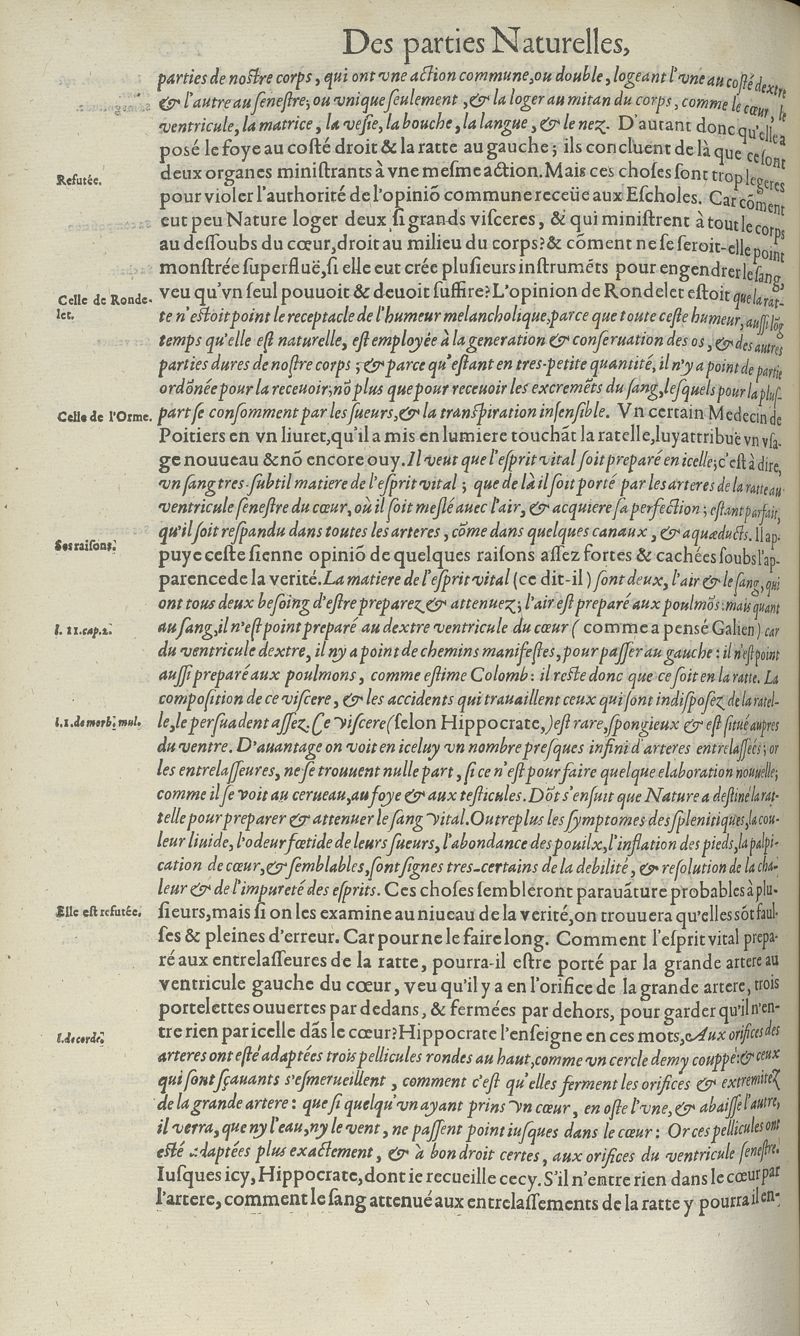 Des parties Naturelles,
parties de noſtre corps, qui ont vne action commune, ou double, logeant l'vne au coſté dextre
& l'autre au ſeneſtre, ou vnique ſeulement, & la loger au mitan du corps, comme le cœur, le
ventricule, la matrice, la veſie, la bouche, la langue, & le nez. D'autant donc qu'elle a
poſé le foye au coſté droit & la ratte au gauche; ils concluent de là que ce ſont
deux organes miniſtrants à vne meſme action. Mais ces choſes ſont trop legeres
Refutée.
pour violer l'authorité de l'opiniō commune receüe aux Eſcholes. Car cōment
eut peu Nature loger deux ſi grands viſceres, & qui miniſtrent à tout le corps
au deſſoubs du cœur, droit au milieu du corps? & cōment ne ſe ſeroit-elle point
monſtrée ſuperfluë, ſi elle eut crée pluſieurs inſtrumēts pour engendrer le ſang,
veu qu'vn ſeul pouuoit & deuoit ſuffire? L'opinion de Rondelet eſtoit que la rat-
Celle de Ronde-
let.
te n'eſtoit point le receptacle de l'humeur melancholique, parce que toute ceſte humeur, auſſi lōg
temps qu'elle eſt naturelle, eſt employée à la generation & conſeruation des os, & des autres
parties dures de noſtre corps; & parce qu'eſtant en tres-petite quantité, il n'y a point de partie
ordōnée pour la receuoir, nō plus que pour receuoir les excremēts du ſang, leſquels pour la pluſ-
part ſe conſomment par les ſueurs, & la tranſpiration inſenſible. Vn certain Medecin de
Celle de l'Orme.
Poitiers en vn liuret, qu'il a mis en lumiere touchāt la ratelle, luy attribuë vn vſa-
ge nouueau & nō encore ouy. Il veut que l'eſprit vital ſoit preparé en icelle; c'eſt à dire,
vn ſang tres-ſubtil matiere de l'eſprit vital; que de là il ſoit porté par les arteres de la ratte au
ventricule ſeneſtre du cœur, où il ſoit meſlé auec l'air, & acquiere ſa perfection; eſtant parfait,
qu'il ſoit reſpandu dans toutes les arteres, cōme dans quelques canaux, & aquæducts. Il ap-
Ses raiſons.
puye ceſte ſienne opiniō de quelques raiſons aſſez fortes & cachées ſoubs l'ap-
parence de la verité. La matiere de l'eſprit vital (ce dit-il) ſont deux, l'air & le ſang, qui
ont tous deux beſoing d'eſtre preparez & attenuez; l'air eſt preparé aux poulmōs: mais quant
au ſang, il n'eſt point preparé au dextre ventricule du cœur (comme a penſé Galien) car
l. 11. cap. 2.
du ventricule dextre, il ny a point de chemins manifeſtes, pour paſſer au gauche: il n'eſt point
auſſi preparé aux poulmons, comme eſtime Colomb: il reſte donc que ce ſoit en la ratte. La
compoſition de ce viſcere, & les accidents qui trauaillent ceux qui ſont indiſpoſez de la ratel-
le, le perſuadent aſſez. Ce viſcere (ſelon Hippocrate,) eſt rare, ſpongieux & eſt ſitué aupres
l. 1. de morb. mul.
du ventre. D'auantage on voit en iceluy vn nombre preſques infini d'arteres entrelaſſées; or
les entrelaſſeures, ne ſe trouuent nulle part, ſi ce n'eſt pour faire quelque elaboration nouuelle;
comme il ſe voit au cerueau, au foye & aux teſticules. Dōt s'enſuit que Nature a deſtiné la rat-
telle pour preparer & attenuer le ſang vital. Outre plus les ſymptomes des ſplenitiques, la cou-
leur liuide, l'odeur fœtide de leurs ſueurs, l'abondance des pouilx, l'inflation des pieds, la palpi-
cation de cœur, & ſemblables, ſont ſignes tres-certains de la debilité, & reſolution de la cha-
leur & de l'impureté des eſprits. Ces choſes ſembleront parauāture probables à plu-
ſieurs, mais ſi on les examine au niueau de la verité, on trouuera qu'elles sōt faul-
Elle eſt refutée.
ſes & pleines d'erreur. Car pour ne le faire long. Comment l'eſprit vital prepa-
ré aux entrelaſſeures de la ratte, pourra-il eſtre porté par la grande artere au
ventricule gauche du cœur, veu qu'il y a en l'orifice de la grande artere, trois
portelettes ouuertes par dedans, & fermées par dehors, pour garder qu'il n'en-
tre rien par icelle dās le cœur? Hippocrate l'enſeigne en ces mots, Aux orifices des
l. de corde.
arteres ont eſté adaptées trois pellicules rondes au haut, comme vn cercle demy couppé: & ceux
qui ſont ſçauants s'eſmerueillent, comment c'eſt qu'elles ferment les orifices & extremitez
de la grande artere: que ſi quelqu'vn ayant prins vn cœur, en oſte l'vne, & abaiſſe l'autre,
il verra, que ny l'eau, ny le vent, ne paſſent point iuſques dans le cœur: Or ces pellicules ont
eſté adaptées plus exactement, & à bon droit certes, aux orifices du ventricule ſeneſtre.
Iuſques icy, Hippocrate, dont ie recueille cecy. S'il n'entre rien dans le cœur par
l'artere, comment le ſang attenué aux entrelaſſements de la ratte y pourra il en-